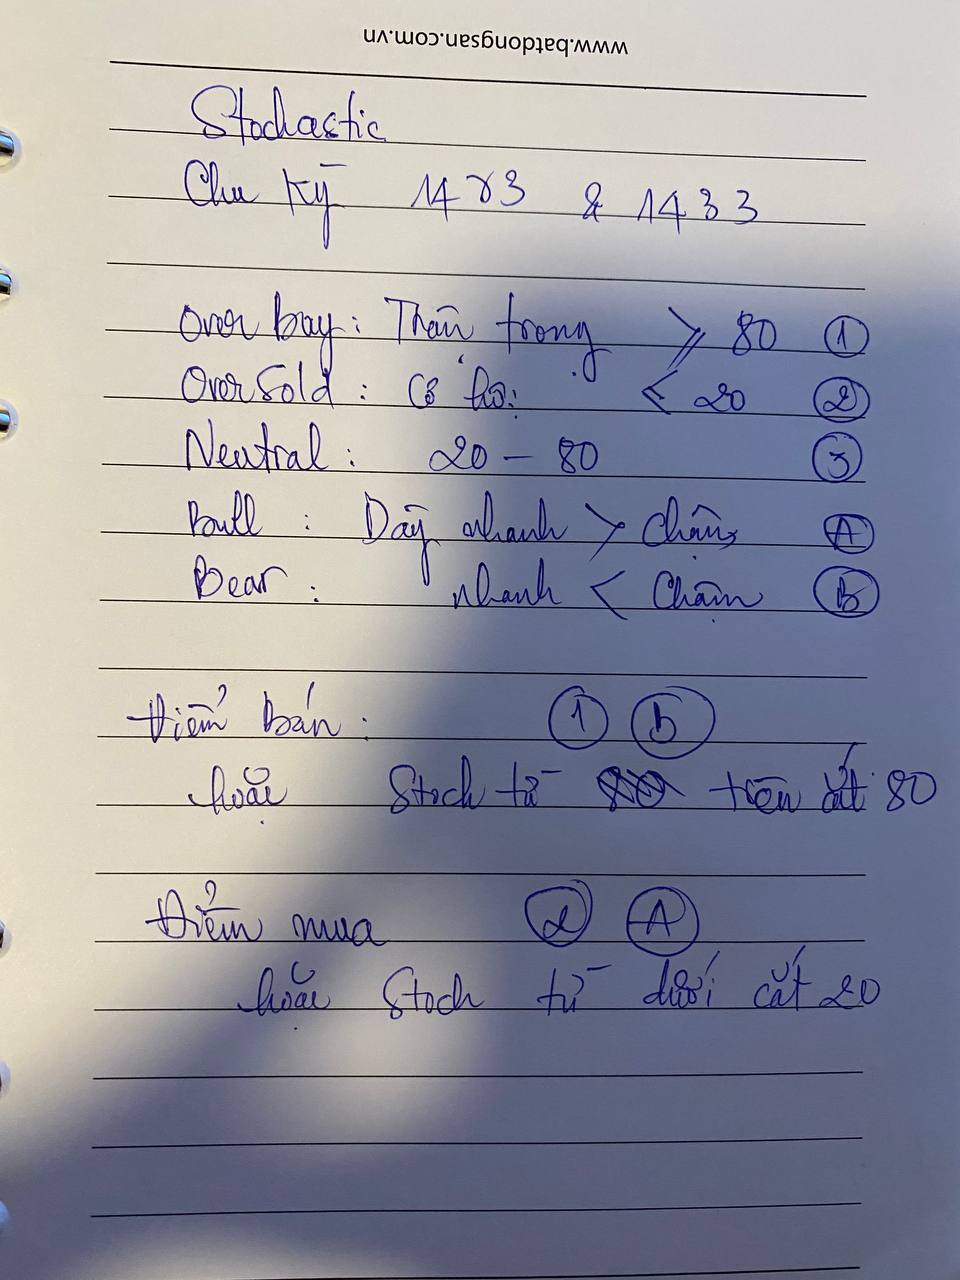 www.batdongsan.com.vn
Stochastic
Chu kỳ 14 8 3 & 14 3 3
Over bay: Thận trọng > 80 ①
Over Sold: Cơ hội < 20 ②
Neutral: 20 – 80 ③
Bull: Dãy nhanh > chậm Ⓐ
Bear: nhanh < chậm Ⓑ
Điểm bán: ① Ⓑ
hoặc Stoch từ trên cắt 80
Điểm mua ② Ⓐ
hoặc Stoch từ dưới cắt 20